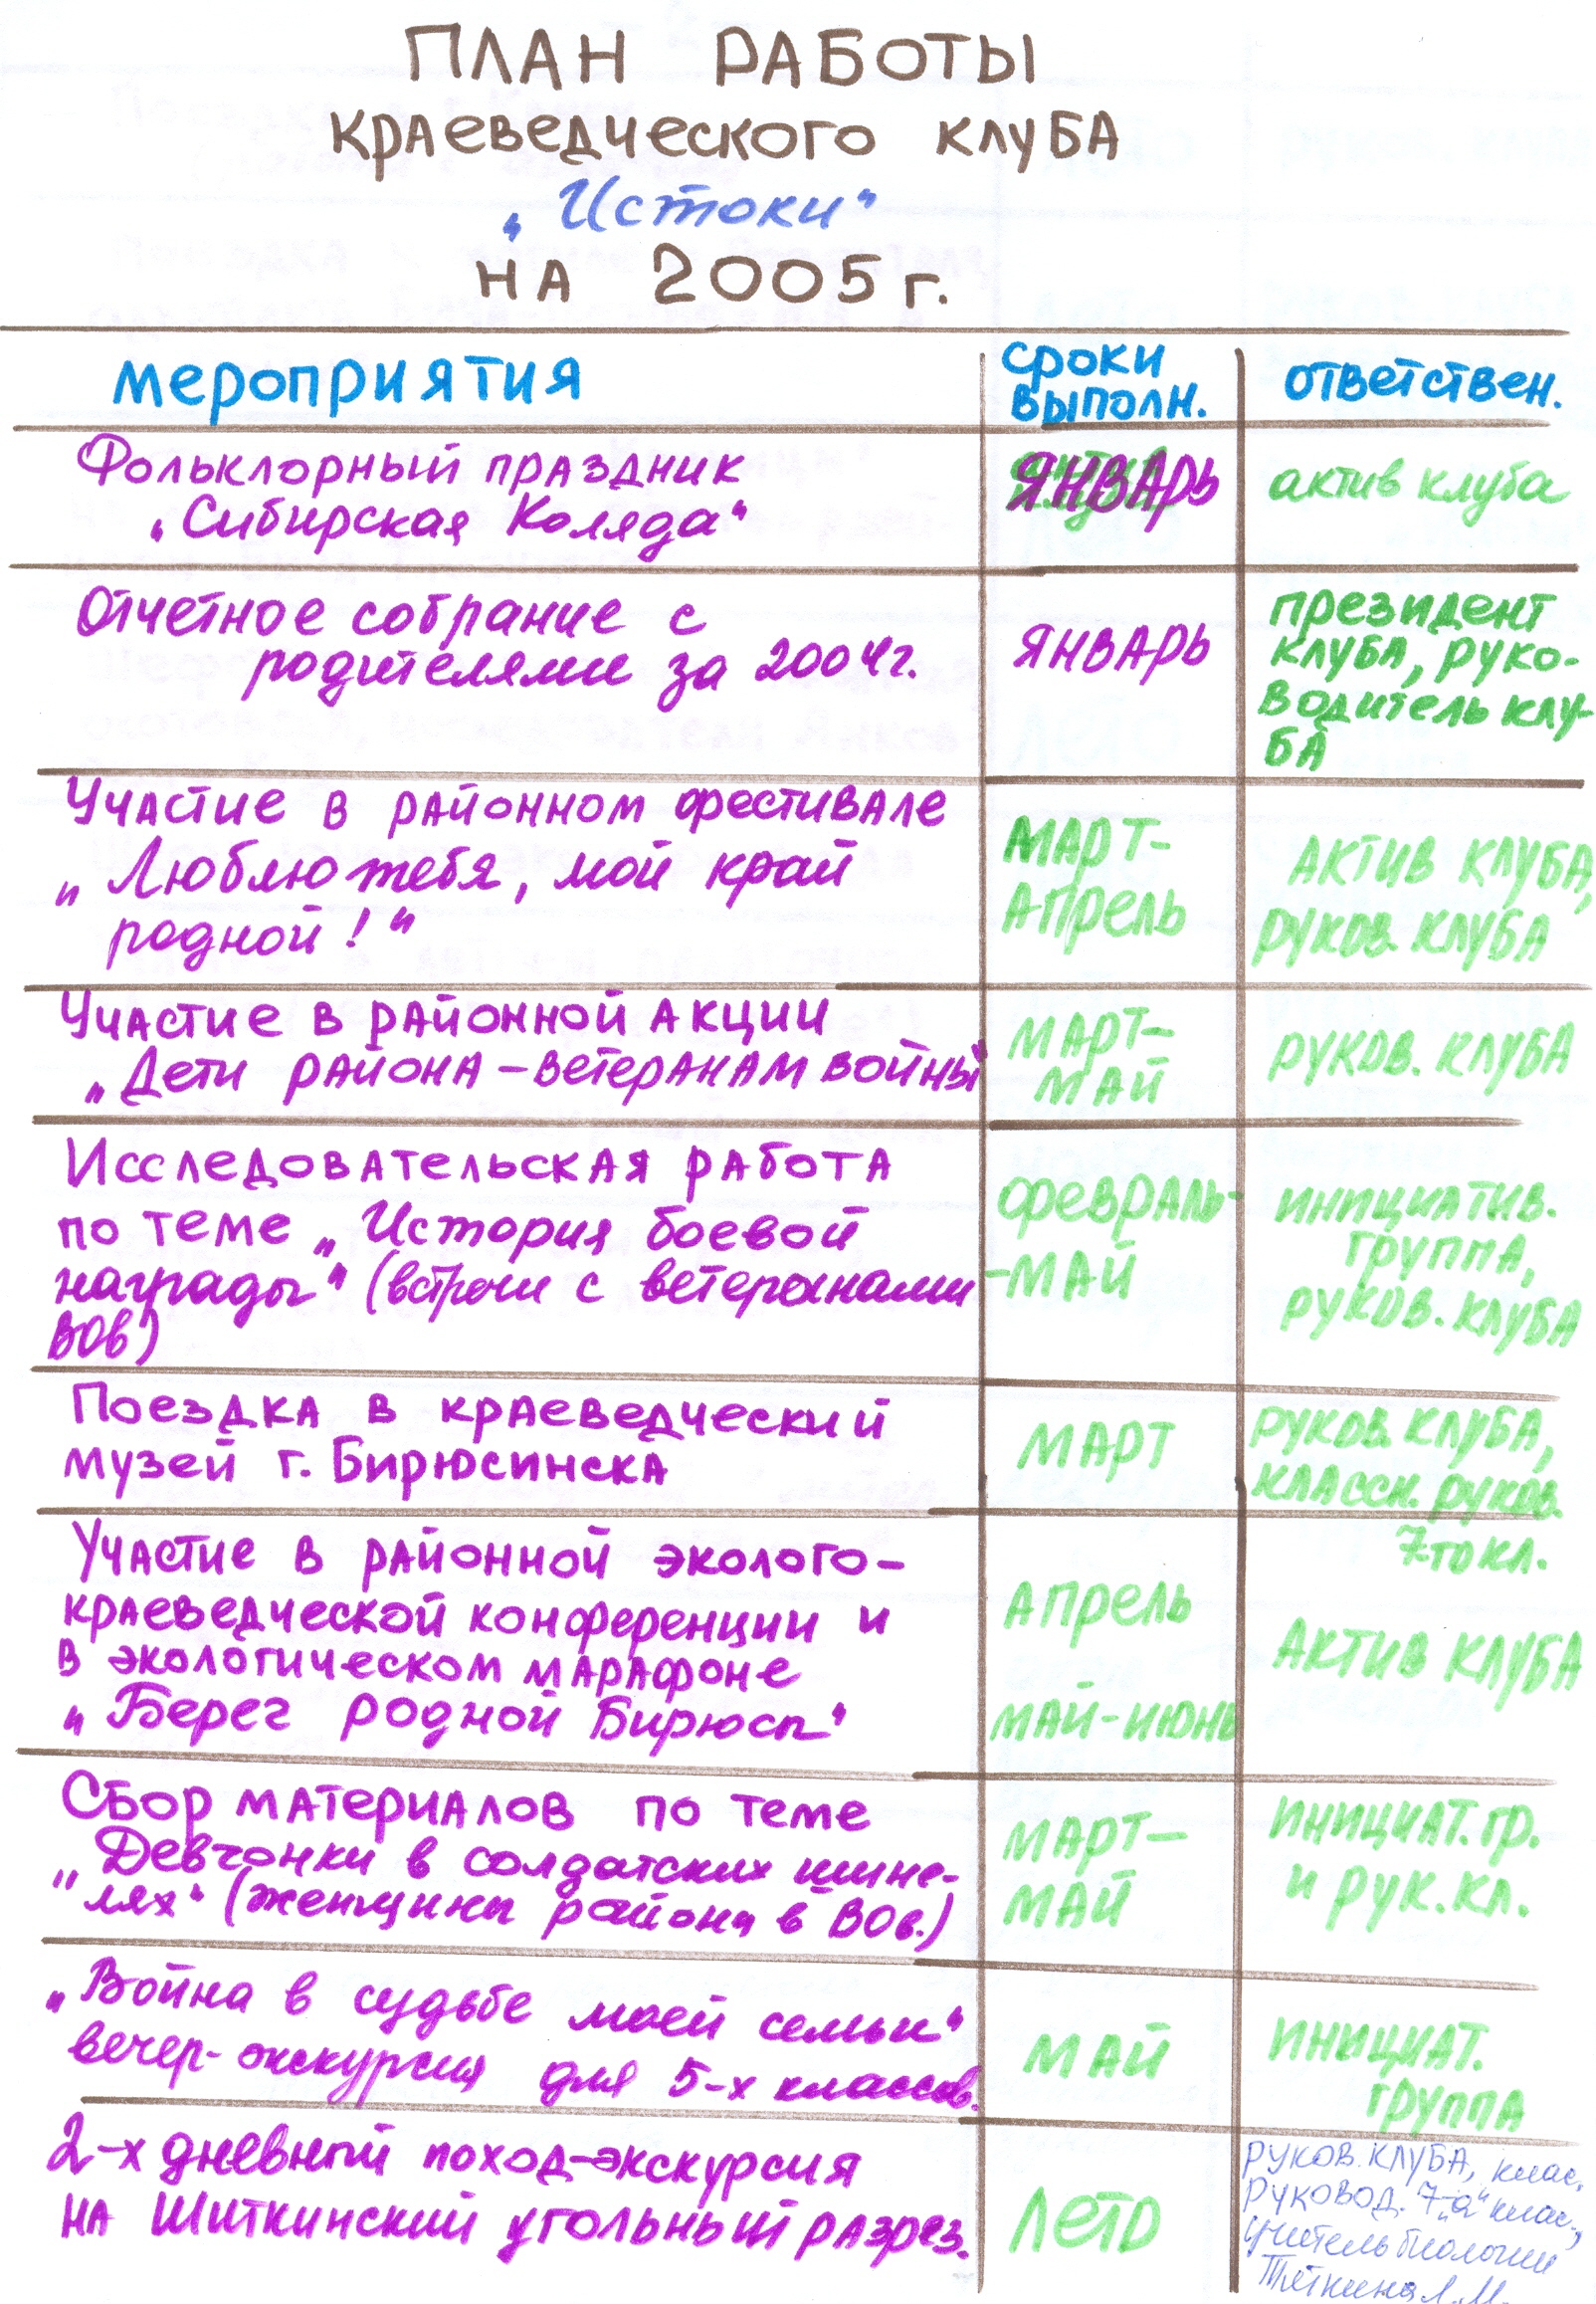 ПЛАН РАБОТЫ
краеведческого клуба
„Истоки"
на 2005 г.
мероприятия
сроки
выполн.
ответствен.
Фольклорный праздник
„Сибирская Коляда"
ЯНВАРЬ
актив клуба
Отчетное собрание с
родителями за 2004г.
ЯНВАРЬ
президент
клуба, руко-
водитель клу-
ба
Участие в районном фестивале
„Люблю тебя, мой край
родной!"
МАРТ-
АПРЕЛЬ
АКТИВ КЛУБА,
РУКОВ. КЛУБА
Участие в районной акции
„Дети района – ветеранам войны
МАРТ-
МАЙ
РУКОВ. КЛУБА
Исследовательская работа
по теме „История боевой
награды" (встречи с ветеранами
ВОв)
ФЕВРАЛЬ-
-МАЙ
ИНИЦИАТИВ.
ГРУППА,
РУКОВ. КЛУБА
Поездка в краеведческий
музей г. Бирюсинска
МАРТ
РУКОВ. КЛУБА,
КЛАССН. РУКОВ.
7-го кл.
Участие в районной эколого-
краеведческой конференции и
в экологическом марафоне
„Берег родной Бирюсы"
АПРЕЛЬ
МАЙ-ИЮНЬ
АКТИВ КЛУБА
Сбор материалов по теме
„Девчонки в солдатских шине-
лях" (женщины района в ВОв.)
МАРТ–
МАЙ
ИНИЦИАТ. ГР.
и РУК. КЛ.
„Война в судьбе моей семьи"
вечер-экскурсия для 5-х классов.
МАЙ
ИНИЦИАТ.
ГРУППА
2-х дневный поход-экскурсия
на Шиткинский угольный разрез.
ЛЕТО
РУКОВ. КЛУБА, клас.
РУКОВОД. 7„а" клас.,
учитель биологии
Л.М.